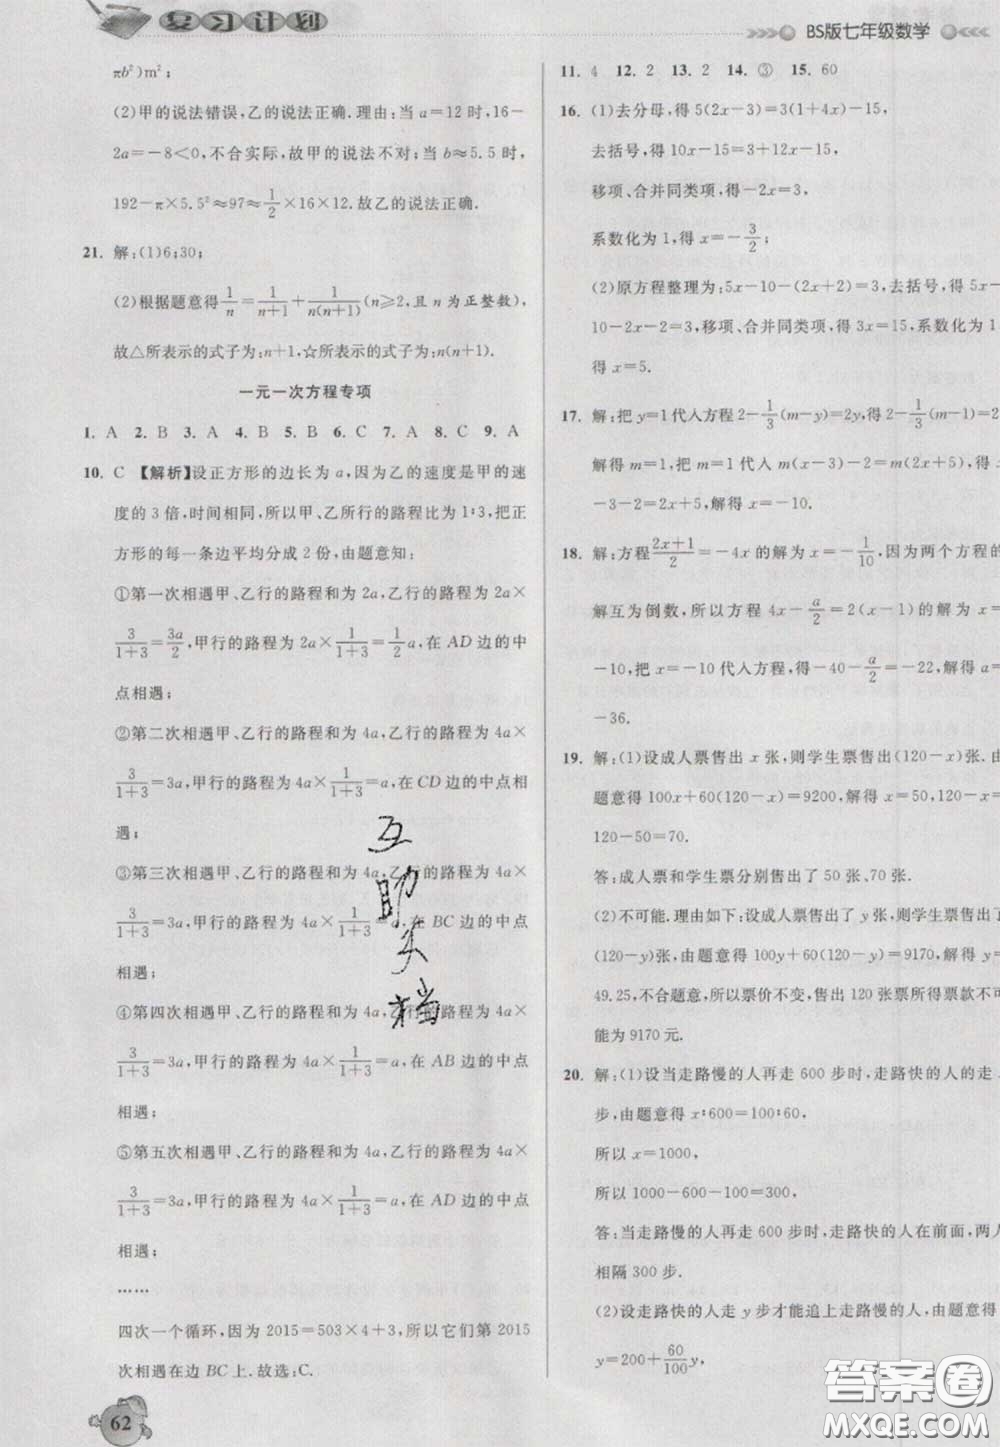 复习计划
BS版七年级数学
πb²)m²;
(2)甲的说法错误,乙的说法正确.理由:当a=12时,16-
2a=-8<0,不合实际,故甲的说法不对;当b≈5.5时,
192-π×5.5²≈97≈1/2×16×12.故乙的说法正确.
21. 解:(1)6;30;
(2)根据题意得1/n=1/(n+1)+1/(n(n+1))(n≥2,且n为正整数),
故△所表示的式子为:n+1,☆所表示的式子为:n(n+1).
一元一次方程专项
1. A 2. B 3. A 4. B 5. B 6. C 7. A 8. C 9. A
10. C 【解析】设正方形的边长为a,因为乙的速度是甲的速
度的3倍,时间相同,所以甲、乙所行的路程比为1:3,把正
方形的每一条边平均分成2份,由题意知:
①第一次相遇甲、乙行的路程和为2a,乙行的路程为2a×
3/(1+3)=3a/2,甲行的路程为2a×1/(1+3)=1/2a,在AD边的中
点相遇;
②第二次相遇甲、乙行的路程和为4a,乙行的路程为4a×
3/(1+3)=3a,甲行的路程为4a×1/(1+3)=a,在CD边的中点相
遇;
③第三次相遇甲、乙行的路程和为4a,乙行的路程为4a×
3/(1+3)=3a,甲行的路程为4a×1/(1+3)=a,在BC边的中点
相遇;
④第四次相遇甲、乙行的路程和为4a,乙行的路程为4a×
3/(1+3)=3a,甲行的路程为4a×1/(1+3)=a,在AB边的中点
相遇;
⑤第五次相遇甲、乙行的路程和为4a,乙行的路程为4a×
3/(1+3)=3a,甲行的路程为4a×1/(1+3)=a,在AD边的中点
相遇;
……
四次一个循环,因为2015=503×4+3,所以它们第2015
次相遇在边BC上.故选:C.
62
互
助
文
档
11. 4 12. 2 13. 2 14. ③ 15. 60
16. (1)去分母,得5(2x-3)=3(1+4x)-15,
去括号,得10x-15=3+12x-15,
移项、合并同类项,得-2x=3,
系数化为1,得x=-3/2;
(2)原方程整理为:5x-10-(2x+2)=3,去括号,得5x-
10-2x-2=3,移项、合并同类项,得3x=15,系数化为1
得x=5.
17. 解:把y=1代入方程2-1/3(m-y)=2y,得2-1/3(m-1)=2
解得m=1,把m=1代入m(x-3)-2=m(2x+5),得x
-3-2=2x+5,解得x=-10.
18. 解:方程(2x+1)/2=-4x的解为x=-1/10,因为两个方程的
解互为倒数,所以方程4x-a/2=2(x-1)的解为x=
-10,把x=-10代入方程,得-40-a/2=-22,解得a=
-36.
19. 解:(1)设成人票售出x张,则学生票售出(120-x)张.由
题意得100x+60(120-x)=9200,解得x=50,120-x=
120-50=70.
答:成人票和学生票分别售出了50张、70张.
(2)不可能.理由如下:设成人票售出了y张,则学生票售出
(120-y)张,由题意得100y+60(120-y)=9170,解得y=
49.25,不合题意,所以票价不变,售出120张票所得票款不可
能为9170元.
20. 解:(1)设当走路慢的人再走600步时,走路快的人的走x
步,由题意得x:600=100:60,
所以x=1000,
所以1000-600-100=300,
答:当走路慢的人再走600步时,走路快的人在前面,两人
相隔300步.
(2)设走路快的人走y步才能追上走路慢的人,由题意得
y=200+60/100y,
答案圈
MXQE.COM